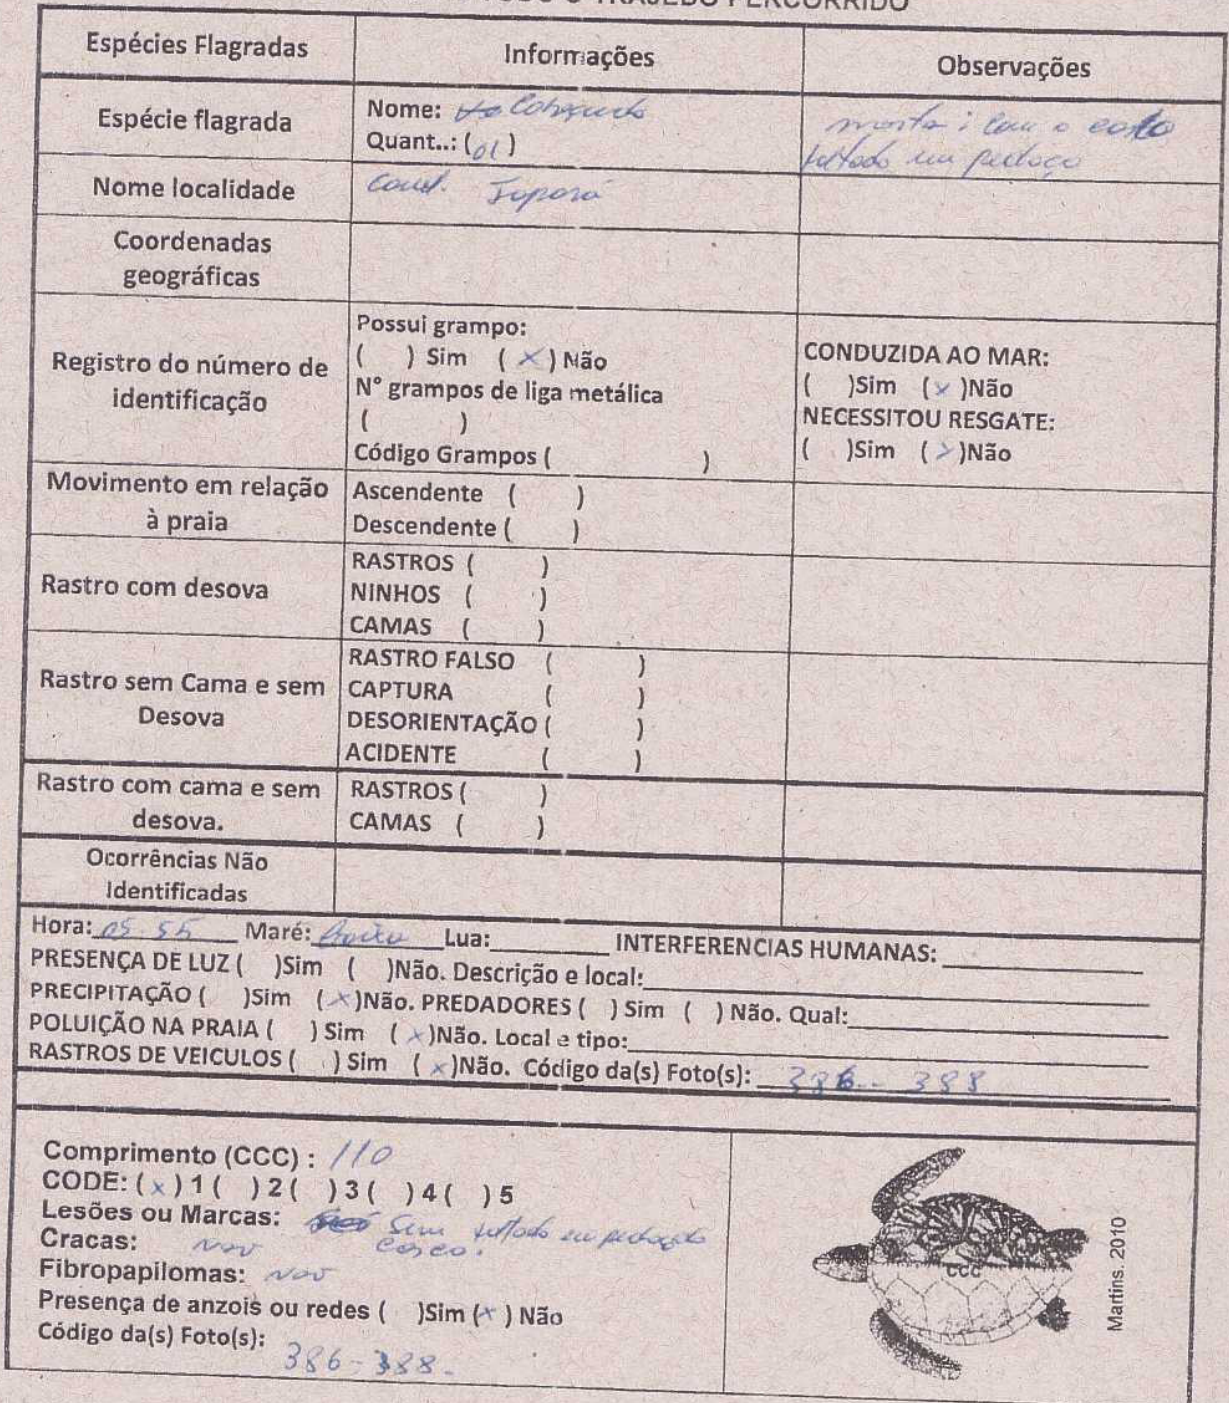 TODO O TRAJEDO PERCORRIDO
Espécies Flagradas Informações Observações
Espécie flagrada
Nome: Cabeçuda
Quant..: (01)
morta; com o casco
faltado um pedaço
Nome localidade
Cond.
Coordenadas
geográficas
Registro do número de
identificação
Possui grampo:
( ) Sim (x) Não
N° grampos de liga metálica
( )
Código Grampos ( )
CONDUZIDA AO MAR:
( )Sim (x)Não
NECESSITOU RESGATE:
( )Sim (x)Não
Movimento em relação
à praia
Ascendente ( )
Descendente ( )
Rastro com desova
RASTROS ( )
NINHOS ( )
CAMAS ( )
Rastro sem Cama e sem
Desova
RASTRO FALSO ( )
CAPTURA ( )
DESORIENTAÇÃO ( )
ACIDENTE ( )
Rastro com cama e sem
desova.
RASTROS ( )
CAMAS ( )
Ocorrências Não
Identificadas
Hora: 05:55 Maré: Baixa Lua:_________ INTERFERENCIAS HUMANAS:_________
PRESENÇA DE LUZ ( )Sim ( )Não. Descrição e local:_________
PRECIPITAÇÃO ( )Sim (x)Não. PREDADORES ( ) Sim ( ) Não. Qual:_________
POLUIÇÃO NA PRAIA ( ) Sim (x)Não. Local e tipo:_________
RASTROS DE VEICULOS ( ) Sim (x)Não. Código da(s) Foto(s): 386-- 388
Comprimento (CCC) : 110
CODE: (x) 1 ( ) 2 ( ) 3 ( ) 4 ( ) 5
Lesões ou Marcas: Sim faltado um pedaço do
casco.
Cracas: Não
Fibropapilomas: Não
Presença de anzois ou redes ( )Sim (x) Não
Código da(s) Foto(s):
386-388-
CCC
Martins. 2010